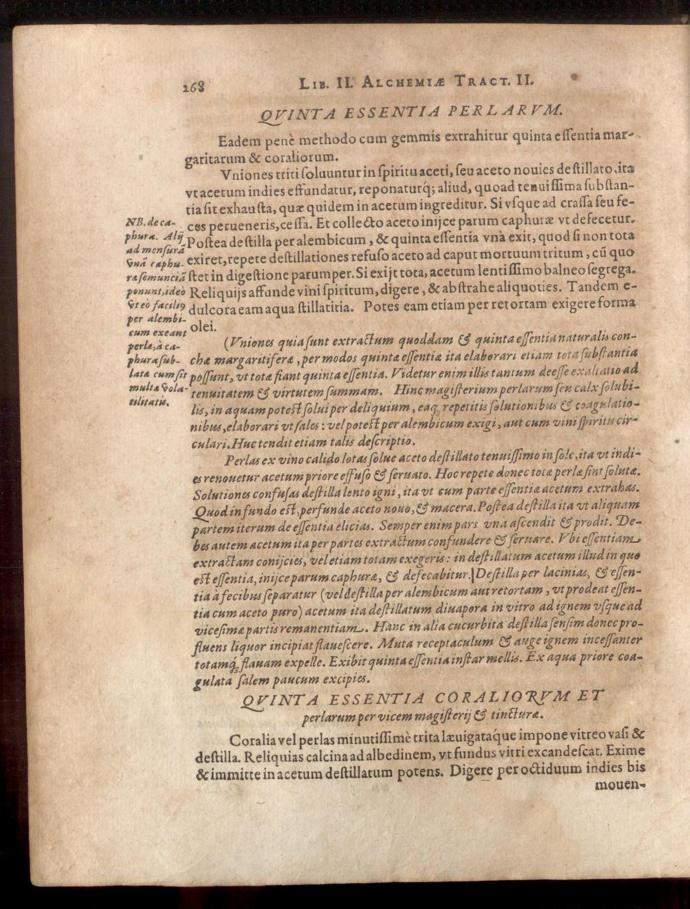 268
LIB. II. ALCHEMIÆ TRACT. II.
QVINTA ESSENTIA PERLARVM.
Eadem penè methodo cum gemmis extrahitur quinta eſſentia mar-
garitarum & coraliorum.
Vniones triti ſoluuntur in ſpiritu aceti, ſeu aceto nouies deſtillato, ita
vt acetum indies effundatur, reponaturq; aliud, quoad tenuiſſima ſubſtan-
tia ſit exhauſta, quæ quidem in acetum ingreditur. Si vſque ad craſſa ſeu fe-
ces perueneris, ceſſa. Et collecto aceto inijce parum caphuræ vt defecetur.
Poſtea deſtilla per alembicum, & quinta eſſentia vnà exit, quod ſi non tota
exiret, repete deſtillationes refuſo aceto ad caput mortuum tritum, cũ quo
ſtet in digeſtione parumper. Si exijt tota, acetum lentiſſimo balneo ſegrega.
Reliquijs affunde vini ſpiritum, digere, & abſtrahe aliquoties. Tandem e-
dulcora eam aqua ſtillatitia. Potes eam etiam per retortam exigere forma
olei.
NB. de ca-
phura. Alij
ad menſurã
vnã caphu-
ræ ſemunciã
ponunt, ideò
vt eò faciliꝰ
per alembi-
cum exeant
perlæ, à ca-
phura ſub-
lata cum ſit
multæ vola-
tilitatis.
(Vniones quia ſunt extractum quoddam & quinta eſſentia naturalis con-
chæ margaritiferæ, per modos quinta eſſentiæ ita elaborari etiam tota ſubſtantia
poſſunt, vt tota fiant quinta eſſentia. Videtur enim illis tantum deeſſe exaltatio ad
tenuitatem & virtutem ſummam. Hinc magiſterium perlarum ſeu calx ſolubi-
lis, in aquam poteſt ſolui per deliquium, eaq; repetitis ſolutionibus & coagulatio-
nibus, elaborari vt ſales: vel poteſt per alembicum exigi, aut cum vini ſpiritu cir-
culari. Huc tendit etiam talis deſcriptio.
Perlas ex vino calido lotas ſolue aceto deſtillato tenuiſſimo in ſole, ita vt indi-
es renouetur acetum priore effuſo & ſeruato. Hoc repete donec totæ perlæ ſint ſolutæ.
Solutiones confuſas deſtilla lento igni, ita vt cum parte eſſentiæ acetum extrahas.
Quod in fundo eſt, perfunde aceto nouo, & macera. Poſtea deſtilla ita vt aliquam
partem iterum de eſſentia elicias. Semper enim pars vna aſcendit & prodit. De-
bes autem acetum ita per partes extractum confundere & ſeruare. Vbi eſſentiam
extractam conijcies, vel etiam totam exegeris: in deſtillatum acetum illud in quo
eſt eſſentia, inijce parum caphuræ, & defecabitur. Deſtilla per lacinias, & eſſen-
tia à fecibus ſeparatur (vel deſtilla per alembicum aut retortam, vt prodeat eſſen-
tia cum aceto puro) acetum ita deſtillatum diuapora in vitro ad ignem vſque ad
viceſimæ partis remanentiam. Hanc in alia cucurbita deſtilla ſenſim donec pro-
fluens liquor incipiat flaueſcere. Muta receptaculum & auge ignem inceſſanter
totamq; flauam expelle. Exibit quinta eſſentia inſtar mellis. Ex aqua priore coa-
gulata ſalem paucum excipies.
QVINTA ESSENTIA CORALIORVM ET
perlarum per vicem magiſterij & tincturæ.
Coralia vel perlas minutiſſimè trita læuigataque impone vitreo vaſi &
deſtilla. Reliquias calcina ad albedinem, vt fundus vitri excandeſcat. Exime
& immitte in acetum deſtillatum potens. Digere per octiduum indies bis
mouen-